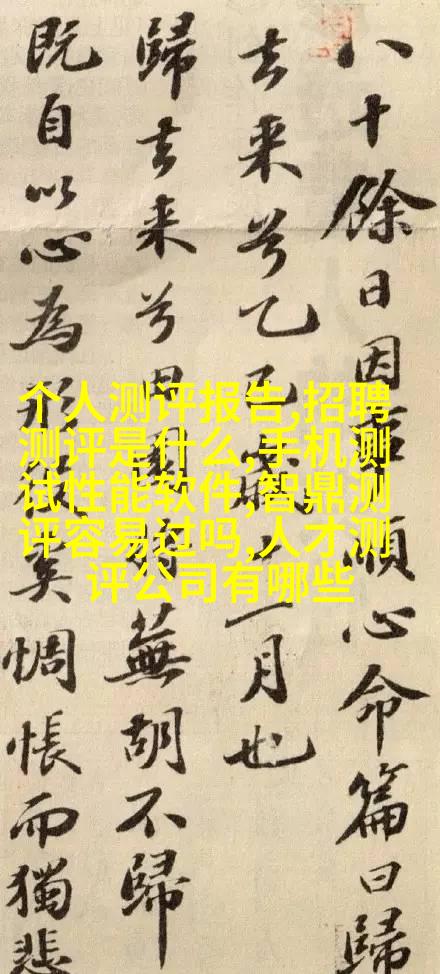 八十餘日因事順心命篇曰歸
去来兮乙巳歲十一月也
歸去来兮田園将蕪胡不歸
既自以心為形役奚惆悵而獨悲
个人测评报告,招聘
测评是什么,手机测
试性能软件,智鼎测
评容易过吗,人才测
评公司有哪些